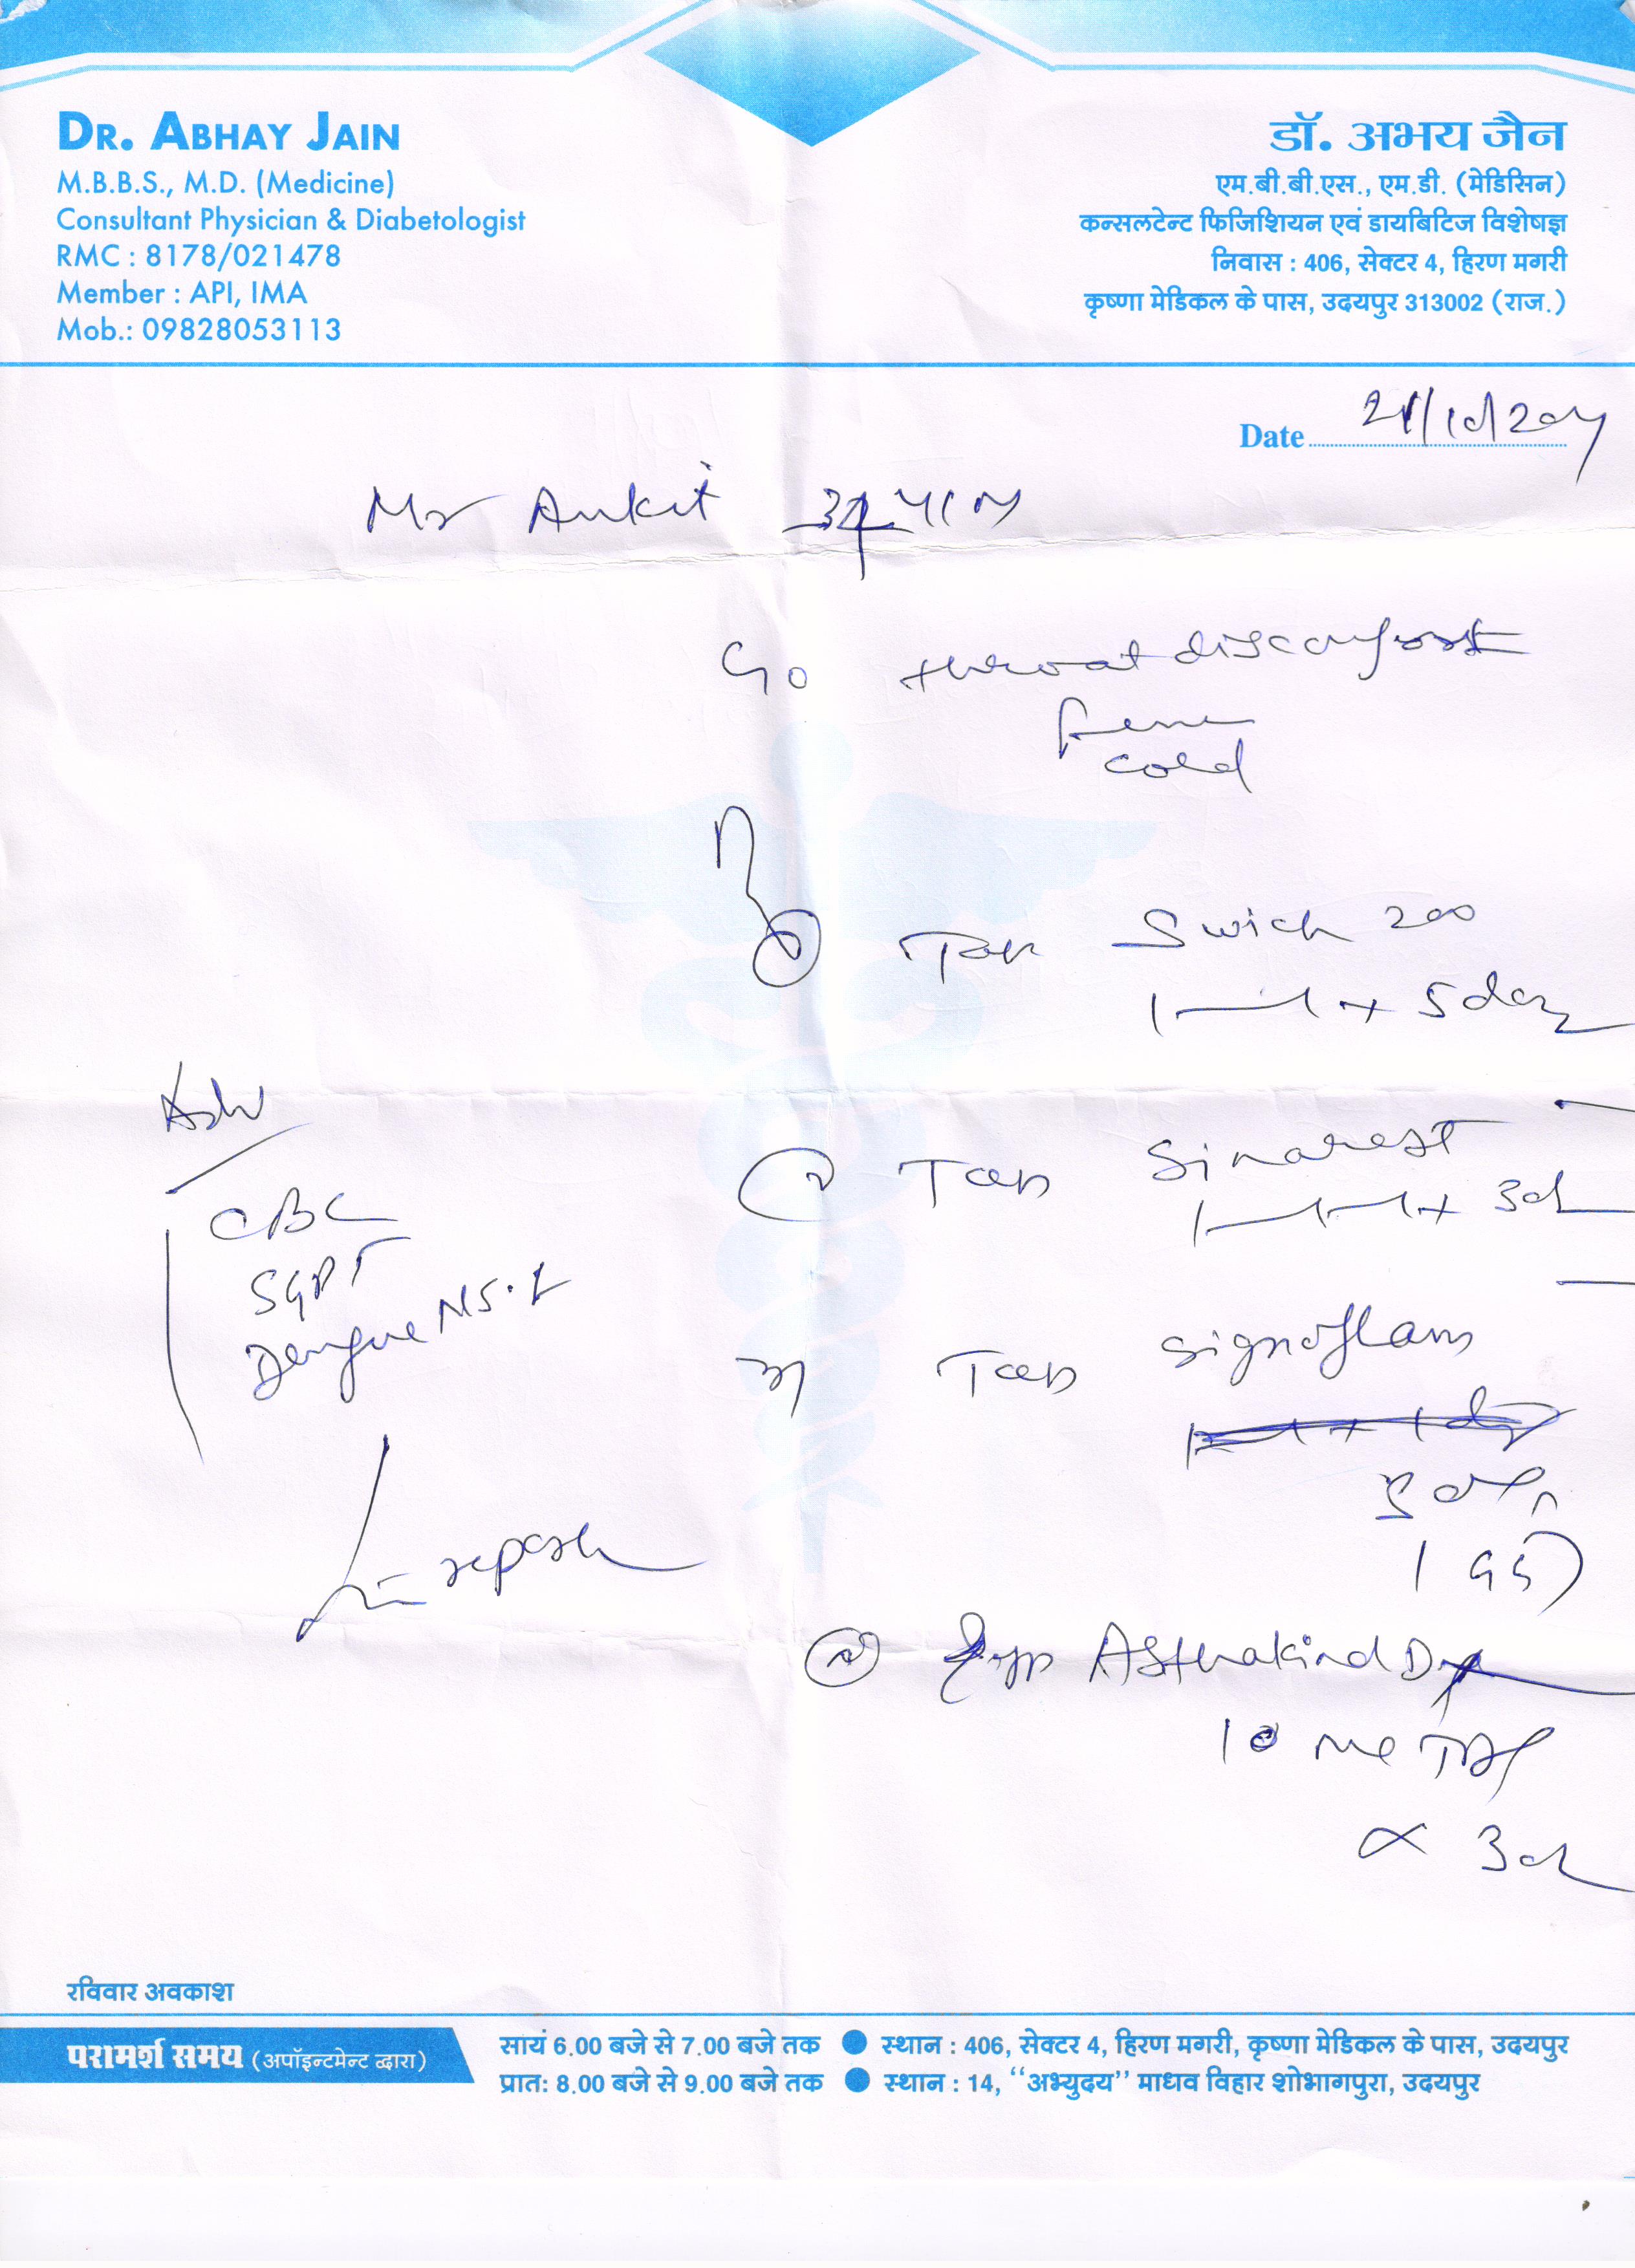 DR. ABHAY JAIN
M.B.B.S., M.D. (Medicine)
Consultant Physician & Diabetologist
RMC : 8178/021478
Member : API, IMA
Mob.: 09828053113
डॉ. अभय जैन
एम.बी.बी.एस., एम.डी. (मेडिसिन)
कन्सलटेन्ट फिजिशियन एवं डायबिटिज विशेषज्ञ
निवास : 406, सेक्टर 4, हिरण मगरी
कृष्णा मेडिकल के पास, उदयपुर 313002 (राज.)
Date
Mr Ankit
throat discomfort
cold
Tab Swich 200
1—1 x 5 day
Adv
CBC
SGPT
Dengue NS.1
② Tab Sinarest
1—1—1 x 3d
Tab Signoflam
Asthakind D
10 ml TDS
x 3d
रविवार अवकाश
परामर्श समय (अपॉइन्टमेन्ट द्वारा)
सायं 6.00 बजे से 7.00 बजे तक ● स्थान : 406, सेक्टर 4, हिरण मगरी, कृष्णा मेडिकल के पास, उदयपुर
प्रात: 8.00 बजे से 9.00 बजे तक ● स्थान : 14, ‘‘अभ्युदय’’ माधव विहार शोभागपुरा, उदयपुर